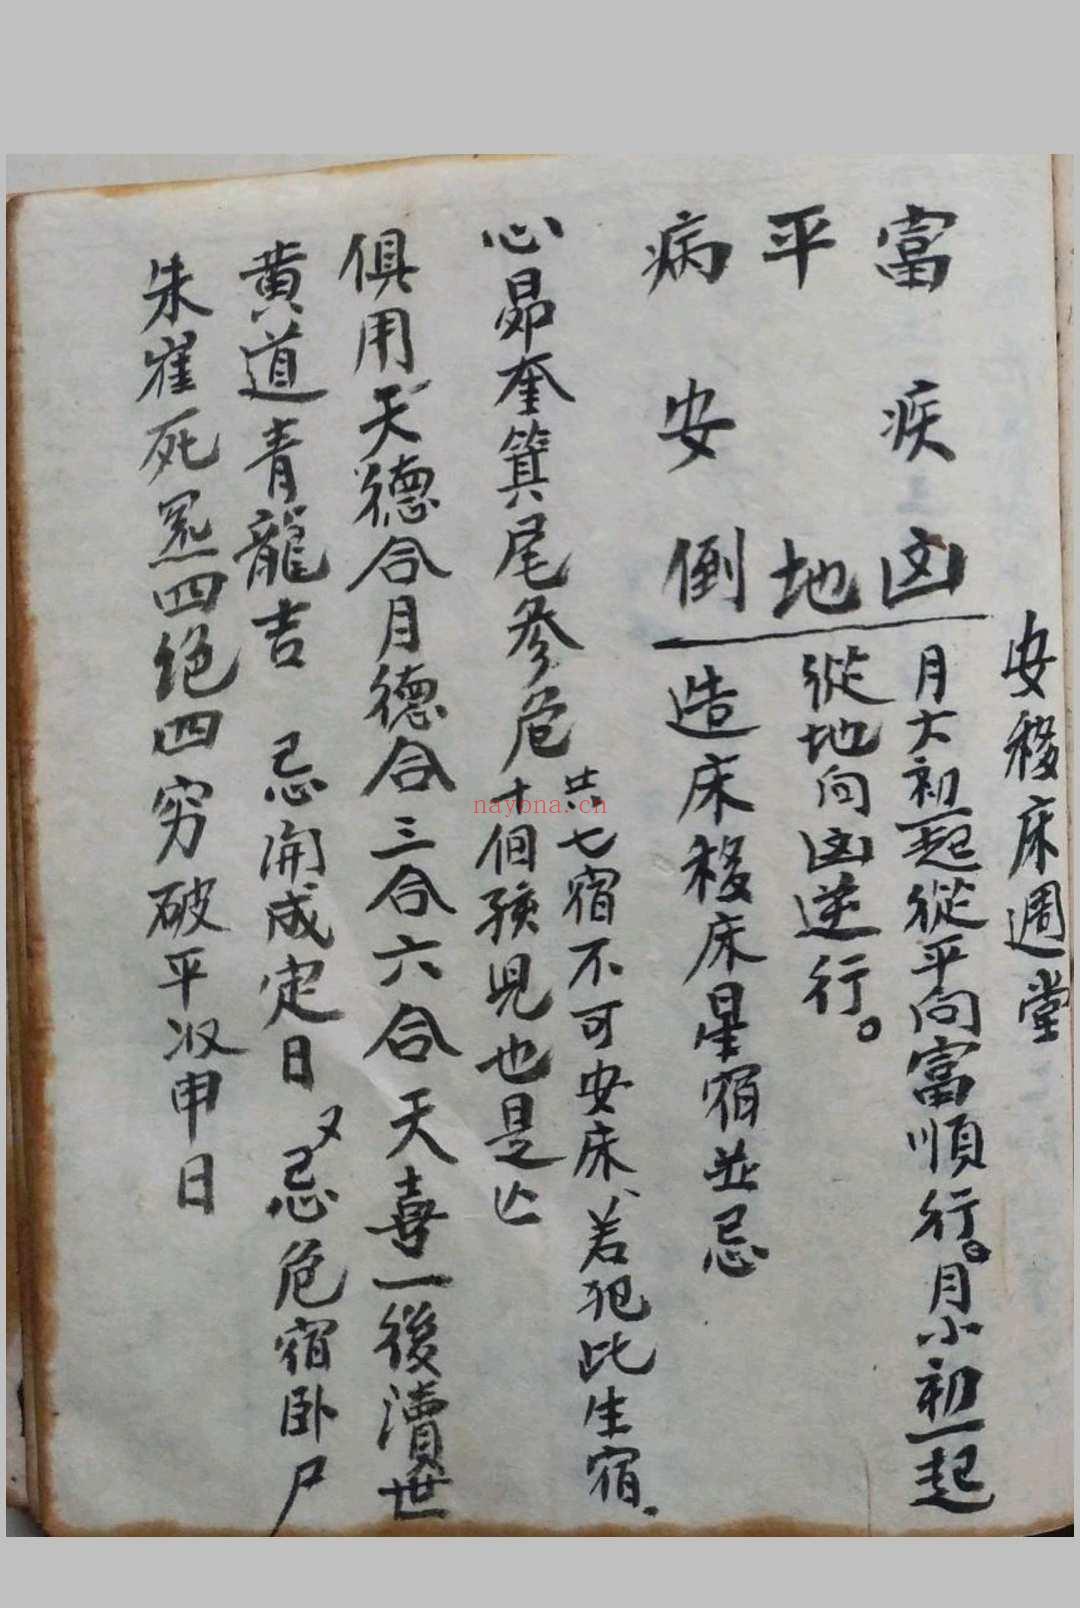 安移床週堂
富 疾 凶
平 地
病 安 倒
月大初一起從平向富順行。月小初一起
從地向凶逆行。
造床移床星宿並忌
心昴奎箕尾参危
共七宿不可安床、若犯此生宿.
十個孩児也是亡
俱用天德合月德合三合六合天喜一後瀆世
黄道青龍吉 忌開成定日 又忌危宿卧尸
朱雀死炁四绝四穷破平收申日
nayona.cn